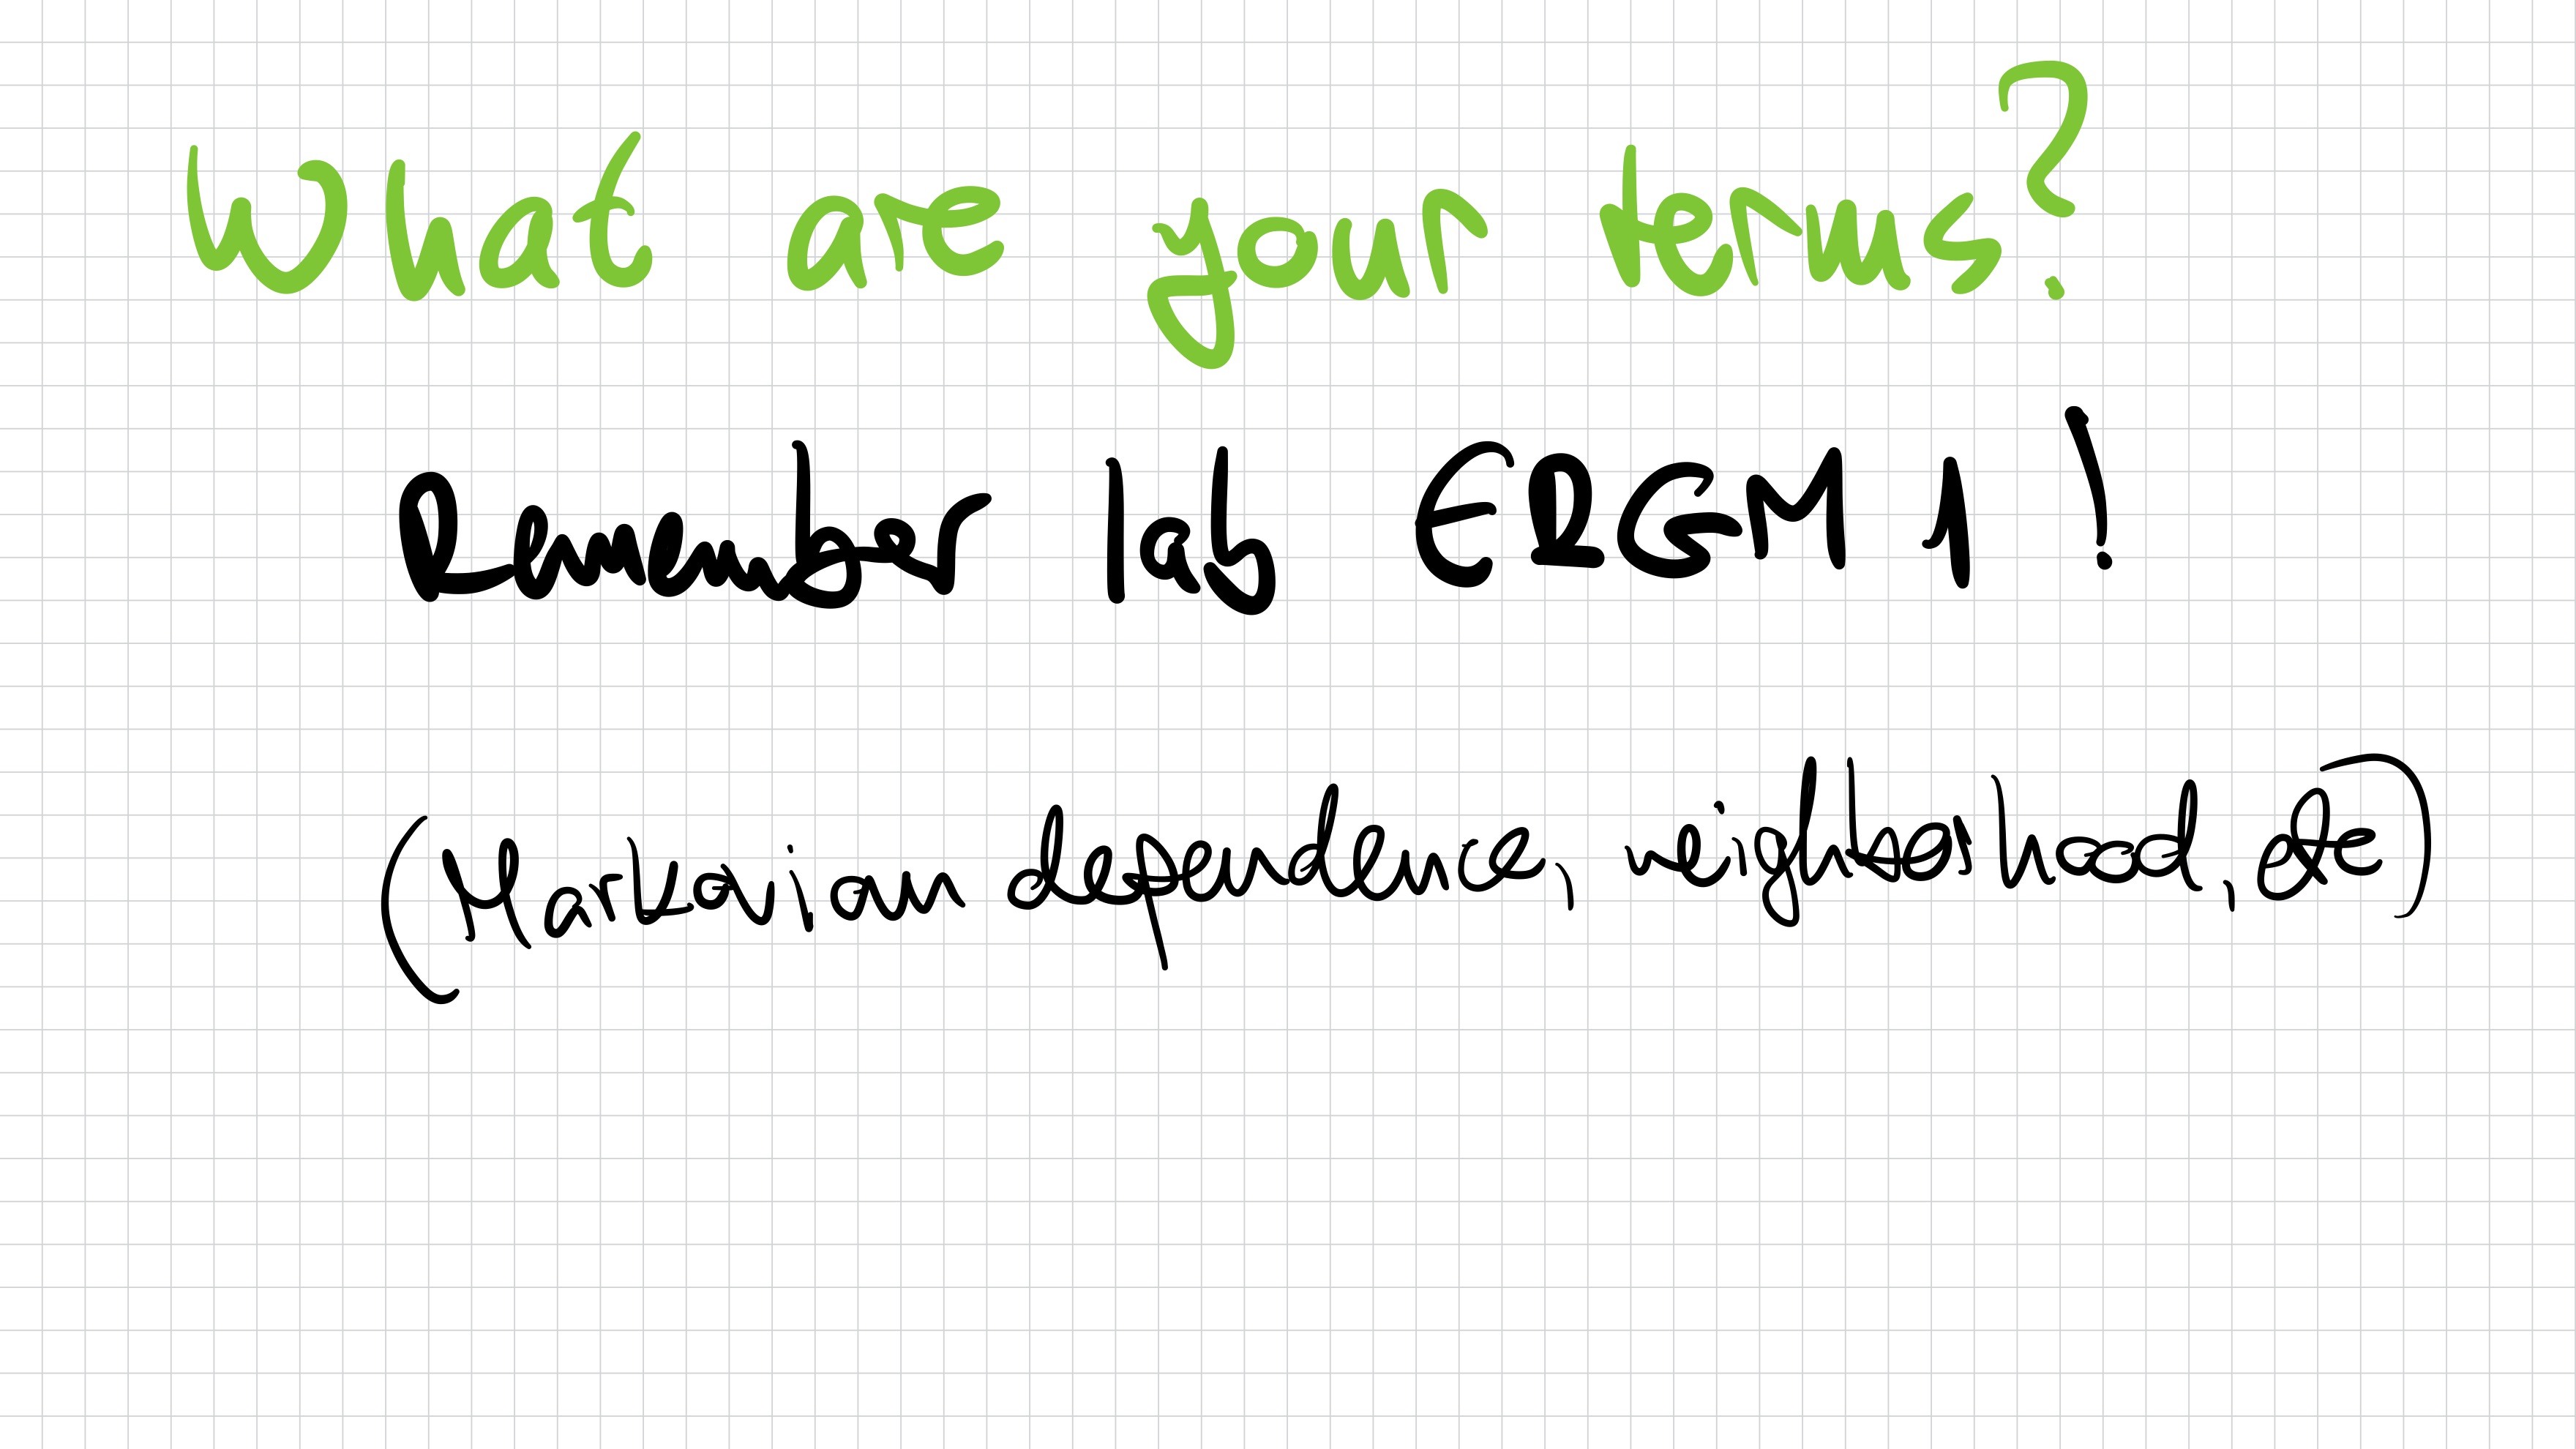 What are your terms?
Remember lab ERGM 1!
(Markovian dependence, neighborhood, etc)